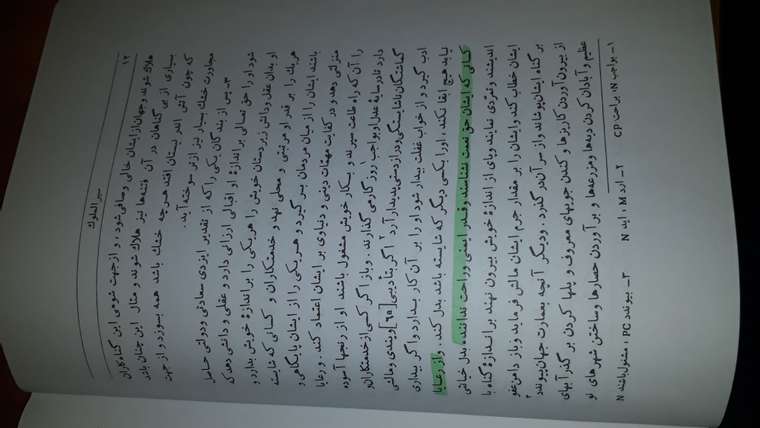 سیر الملوك
۱۲
هلاك شوند و جهان از ایشان خالی و صافی شود، و از جهت شومی این گناهکاران
بسیاری از بی گناهان در آن فتنه‌ها نیز هلاك شوند و مثال این چنان باشد
که چون آتش اندر نیستان افتد هر چه خشك باشد همه بسوزد و از جهت
مجاورت خشك بسیار نیز از تر سوخته آید.
۳- پس از بندگان یکی را که از تقدیر ایزدی سعادتی و دولتی حاصل
شود او را حق تعالی بر اندازۀ او اقبالی ارزانی دارد و عقلی و دانشی دهد که
او بدان عقل و دانش زیردستان خویش را هر یکی را بر اندازۀ خویش بدارد و
هر یك را بر قدر او مرتبتی و محلی نهد و خدمتکاران و کسانی که شایسته
باشند ایشان را از میان مردمان برگیرد و هر یکی را از ایشان پایگاهی و
منزلتی دهد و در کفایت مهمات دینی و دنیاوی بر ایشان اعتماد کند. و رعایا
را آن که راه طاعت سپرند و بکار خویش مشغول باشند او از رنجها آسوده
دارد تا در سایۀ عدل او بواجب۱ روزگار می گذارند. و باز اگر کسی از خدمتکاران و
گماشتگان ناشایستگی و درازدستی پدیدار آرد۲ اگر بتأدیبی [6a] و پندی و مالشی
ادب گیرد و از خواب غفلت بیدار شود او را بر آن کار بدارد و اگر بیداری
نیابد هیچ ابقا نکند، او را بکسی دیگر که شایسته باشد بدل کند. و از رعایا
کسانی که ایشان حق نعمت نشناسند و قدر ایمنی و راحت ندانند و بدل خیانتی
اندیشند و تمردی نمایند و پای از اندازۀ خویش بیرون نهند بر اندازۀ گناه با
ایشان خطاب کند و ایشان را بر مقدار جرم ایشان مالش فرماید و باز دامن عفو
بر گناه ایشان پوشاند و از سر آن در گذرد. و دیگر آنچه بعمارت جهان پیوندد۳
از بیرون آوردن کاریزها و کندن جویهای معروف و پلها کردن بر گذر آبهای
عظیم و آبادان کردن دیهها و مزرعه‌ها و برآوردن حصارها و ساختن شهرهای نو
۱- بواجب N، براحت CP ۲- آرد M، آید N ۳- پیوندد PC، مشغول باشند N